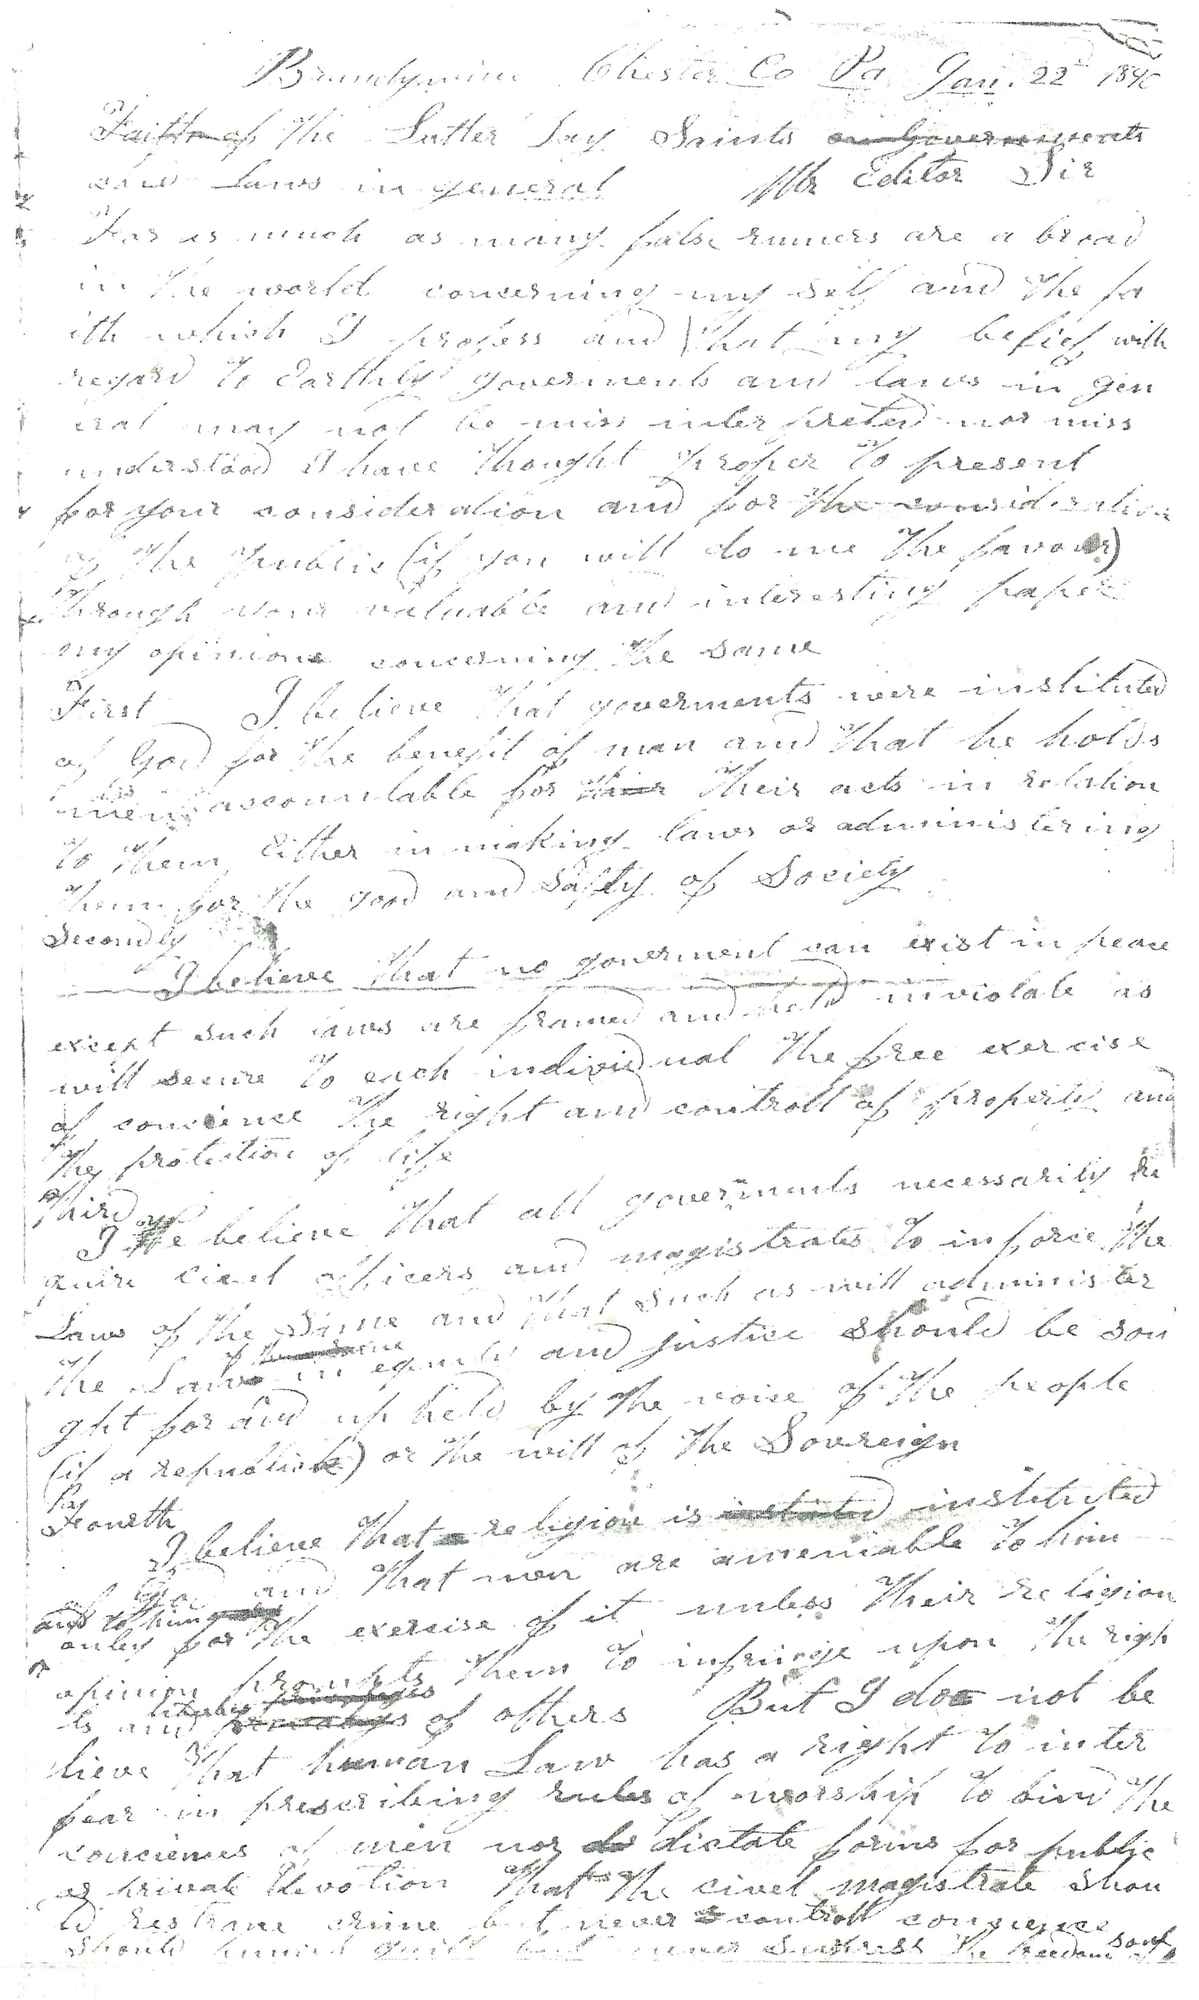 Brandywine Chester Co Pa Jan. 22 1840
Faith of the Latter Day Saints on Governments
and Laws in general Mr Editor Sir
For as much as many false rumers are a broad
in the world concerning my self and the fa
ith which I profess and that my belief with
regard to Earthly goverments and laws in gen
eral may not be miss interpreted nor miss
understood I have thought proper to present
for your consideration and for the consideration
of the public (if you will do me the favour)
through your valuable and interesting paper
my opinions concerning the same
First I believe that goverments were instituted
of God for the benefit of man and that he holds
men accountable for their their acts in relation
to them Either in making laws or administering
them for the good and safty of Society
Secondly
I believe that no goverment can exist in peace
except such laws are framed and held inviolate as
will secure to each individual the free exercise
of concience the right and controll of property and
the protection of life
Third
I believe that all goverments necessarily re
quire civel officers and magistrates to inforce the
Laws of the Same and that such as will administer
the Laws in equity and justice should be sou
ght for and up held by the voice of the people
(if a republick) or the will of the Sovreign
Fourth
I believe that religion is instituted
of God and that men are ameniable to him
and to him
onley for the exercise of it unless their religion
opinion prompts them to infringe upon the righ
ts and of others But I doe not be
lieve that human Law has a right to inter
fear in prescribing rules of worship to bind the
conciences of men nor dictate forms for public
or private devotion that the civel magistrate shou
ld restrane crime but never controll concience
should punish guilt but never surpress the freedom of soul